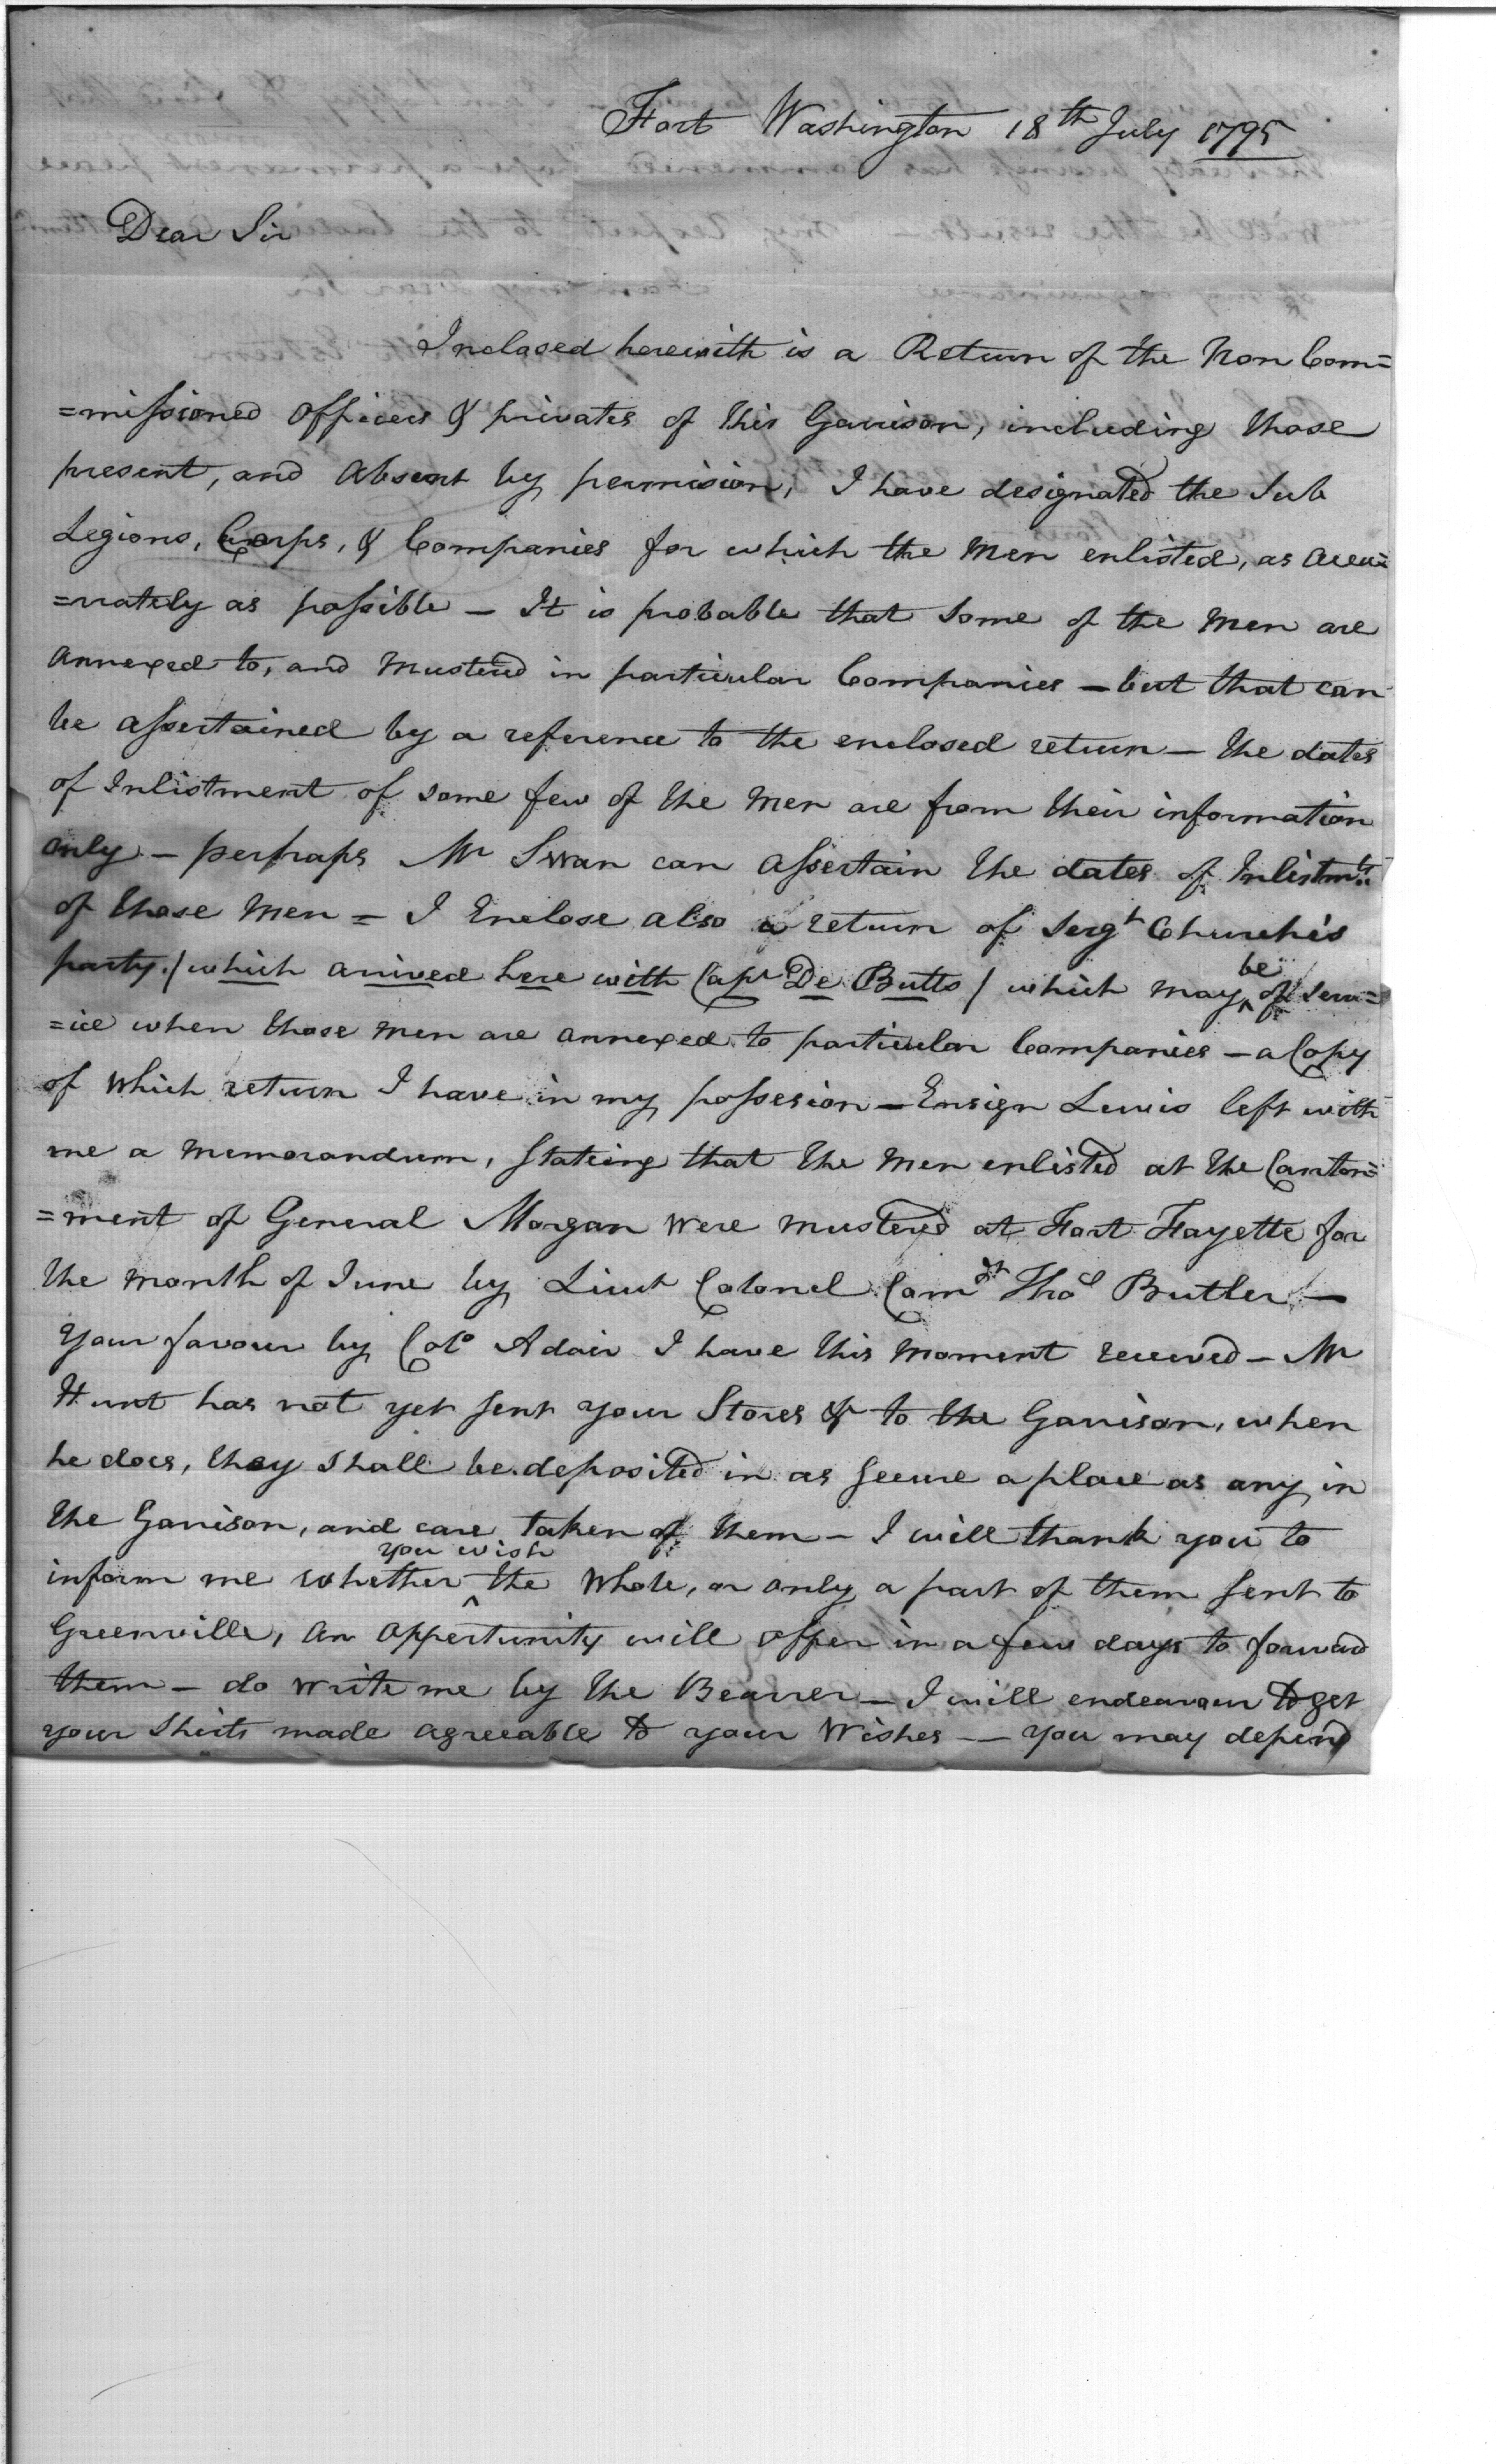 Fort Washington 18th July 1795
Dear Sir
Inclosed herewith is a Return of the Non Com=
=missioned officers & privates of this Garrison, including those
present, and Absent by permision, I have designated the Sub
Legions, Corps, & Companies for which the Men enlisted, as accu=
=rately as possible – It is probable that some of the Men are
annexed to, and Mustered in particular Companies – but that can
be assertained by a reference to the enclosed return – the dates
of Inlistment of some few of the Men are from their information
only – perhaps Mr Swan can assertain the dates of Inlistmts
of those Men = I Enclose also a return of Sergt Church's
party / which arrived here with Capt De Butts / which may be of serv=
=ice when those men are annexed to particular Companies – a Copy
of which return I have in my possesion – Ensign Lewis left with
me a Memorandum, Stating that the Men enlisted at the Canton=
=ment of General Morgan were mustered at Fort Fayette for
the Month of June by Lieut Colonel Comdt Thos Butler –
your favour by Colo Adair I have this Moment received – Mr
Hunt has not yet sent your Stores & to the Garrison, when
he does, they shall be deposited in as secure a place as any in
the Garrison, and care taken of them – I will thank you to
inform me whether you wish the Whole, or only a part of them sent to
Greenville, An oppertunity will offer in a few days to forward
them – do write me by the Bearer – I will endeavour to get
your Shirts made agreeable to your Wishes – you may depend